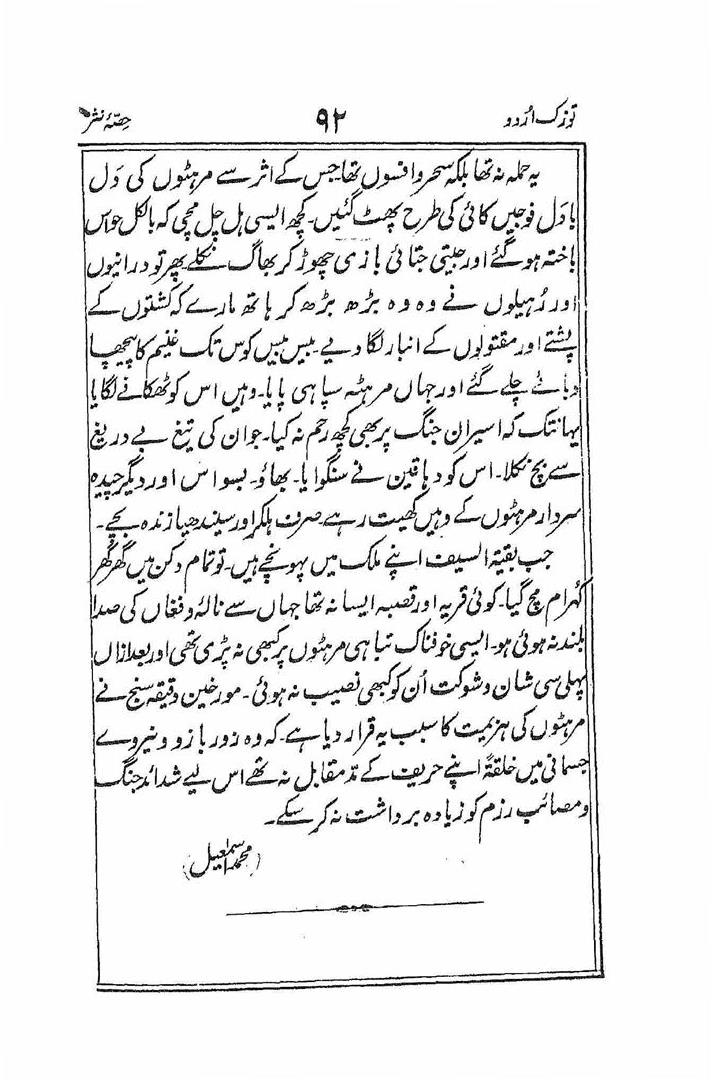 توزک اُردو
۹۲
حصّۂ نثر
یہ حملہ نہ تھا بلکہ سحر و افسوں تھا۔ جس کے اثر سے مرہٹوں کی دَل
بادَل فوجیں کائی کی طرح پھٹ گئیں۔ کچھ ایسی ہل چل مچی کہ بالکل حواس
باختہ ہو گئے اور جیتی جتائی بازی چھوڑ کر بھاگ نکلے پھر تو درانیوں
اور رُہیلوں نے وہ وہ بڑھ بڑھ کر ہاتھ مارے کہ کشتوں کے
پشتے اور مقتولوں کے انبار لگا دیے۔ بیس بیس کوس تک غنیم کا پیچھا
دبائے چلے گئے اور جہاں مرہٹہ سپاہی پایا۔ وہیں اس کو ٹھکانے لگایا
یہانتک کہ اسیران جنگ پر بھی کچھ رحم نہ کیا۔ جو ان کی تیغ بے دریغ
سے بچ نکلا۔ اس کو دہاقین نے سنگوایا۔ بھاؤ۔ بسواس اور دیگر چیدہ
سردار مرہٹوں کے وہیں کھیت رہے صرف ہلکر اور سیندھیا زندہ بچے۔
جب بقیۃ السیف اپنے ملک میں پہونچے ہیں۔ تو تمام دکن میں گھر گھر
کُہرام مچ گیا۔ کوئی قریہ اور قصبہ ایسا نہ تھا جہاں سے نالہ و فغاں کی صدا
بلند نہ ہوئی ہو۔ ایسی خوفناک تباہی مرہٹوں پر کبھی نہ پڑی تھی اور بعد ازاں
پہلی سی شان و شوکت اُن کو کبھی نصیب نہ ہوئی۔ مورخین دقیقہ سنج نے
مرہٹوں کی ہزیمت کا سبب یہ قرار دیا ہے۔ کہ وہ زور بازو و نیروے
جسمانی میں خلقۃً اپنے حریف کے مدّ مقابل نہ تھے اس لیے شدائد جنگ
و مصائب رزم کو زیادہ برداشت نہ کر سکے۔
(محمد اسمٰعیل)